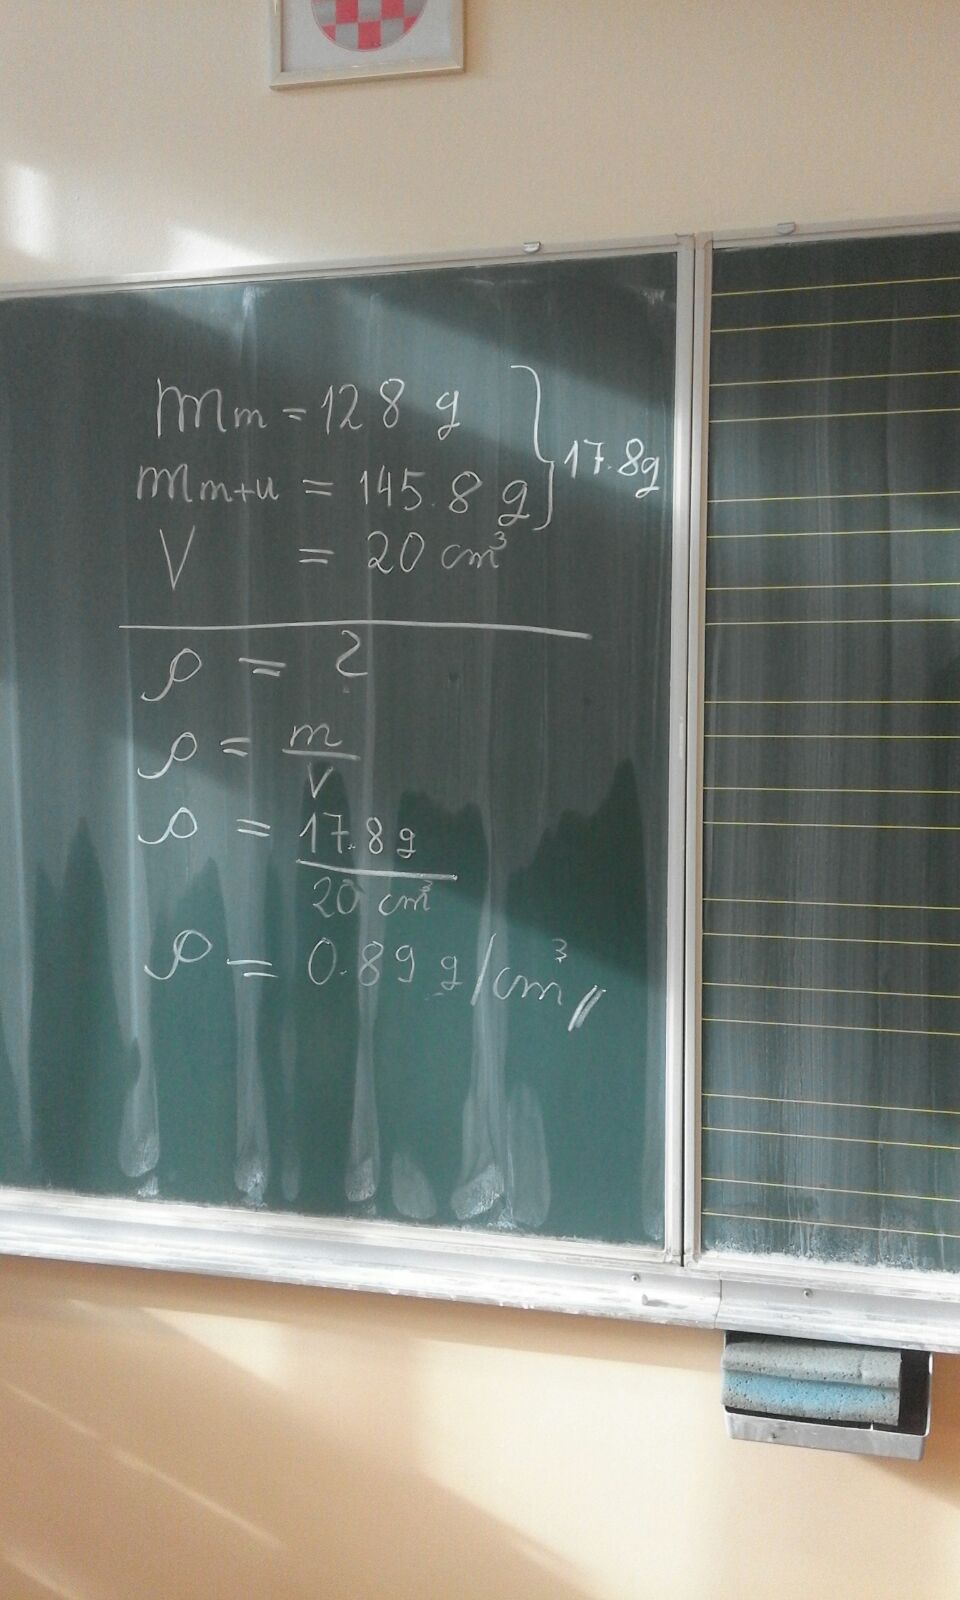 mm = 128 g
mm+u = 145.8 g } 17.8g
V = 20 cm³
ρ = ?
ρ = m/V
ρ = 17.8 g / 20 cm³
ρ = 0.89 g/cm³ //